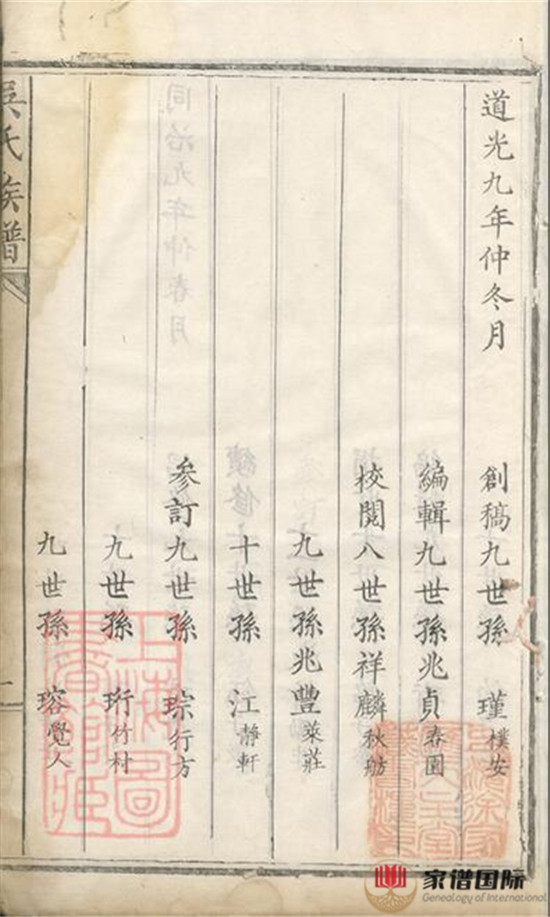 道光九年仲冬月
創稿九世孫 瑾 樸安
編輯九世孫兆貞 春園
校閱八世孫祥麟 秋舫
九世孫兆豐 萊莊
十世孫 江 靜軒
參訂九世孫 琮 行方
九世孫 珩 竹村
九世孫 瑢 覺人
吳氏族譜
一
上海圖書館藏
同治九年仲春月
續修
家谱国际
Genealogy of International